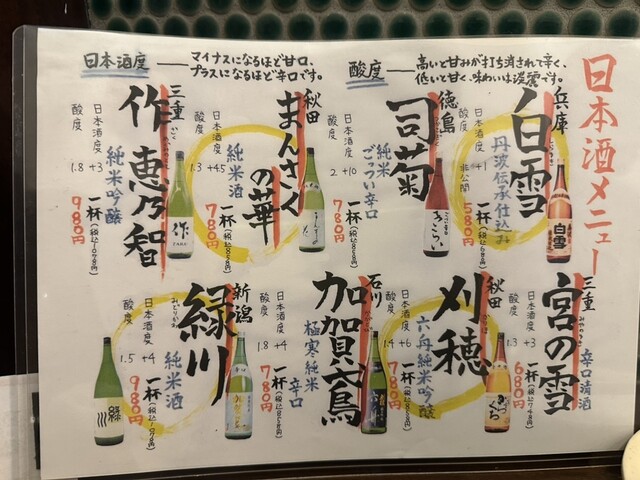 日本酒メニュー
日本酒度 ― マイナスになるほど甘口、
プラスになるほど辛口です。
酸度 ― 高いと甘みが打ち消されて辛く、
低いと甘く、味わいは淡麗です。
兵庫
白雪
丹波伝承仕込み
日本酒度 +1
酸度 非公開
一杯 580円
徳島
司菊
純米
ごっつい辛口
日本酒度 +10
酸度 2
一杯(税込858円)
780円
秋田
まんさくの華
純米酒
日本酒度 +4.5
酸度 1.3
一杯(税込858円)
780円
三重
作 恵乃智
純米吟醸
日本酒度 +3
酸度 1.8
一杯(税込1078円)
980円
作
三重
宮の雪
みやのゆき
辛口清酒
日本酒度 +3
酸度 1.3
一杯(税込748円)
680円
秋田
刈穂
かりほ
六舟純米吟醸
日本酒度 +6
酸度 1.4
一杯(税込858円)
780円
石川
加賀鳶
極寒純米
辛口
日本酒度 +4
酸度 1.8
一杯(税込858円)
780円
新潟
緑川
みどりかわ
純米酒
日本酒度 +4
酸度 1.5
一杯(税込1078円)
980円
緑川
白雪